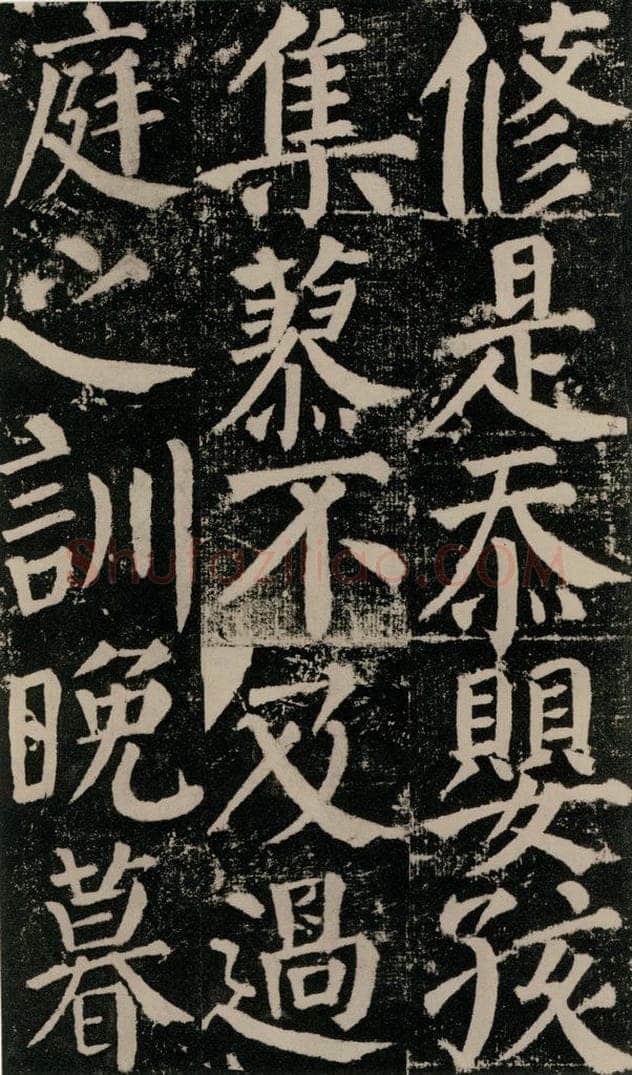 修是忝嬰孩
集蓼不及過
庭之訓晚暮
Shufaziliao.COM